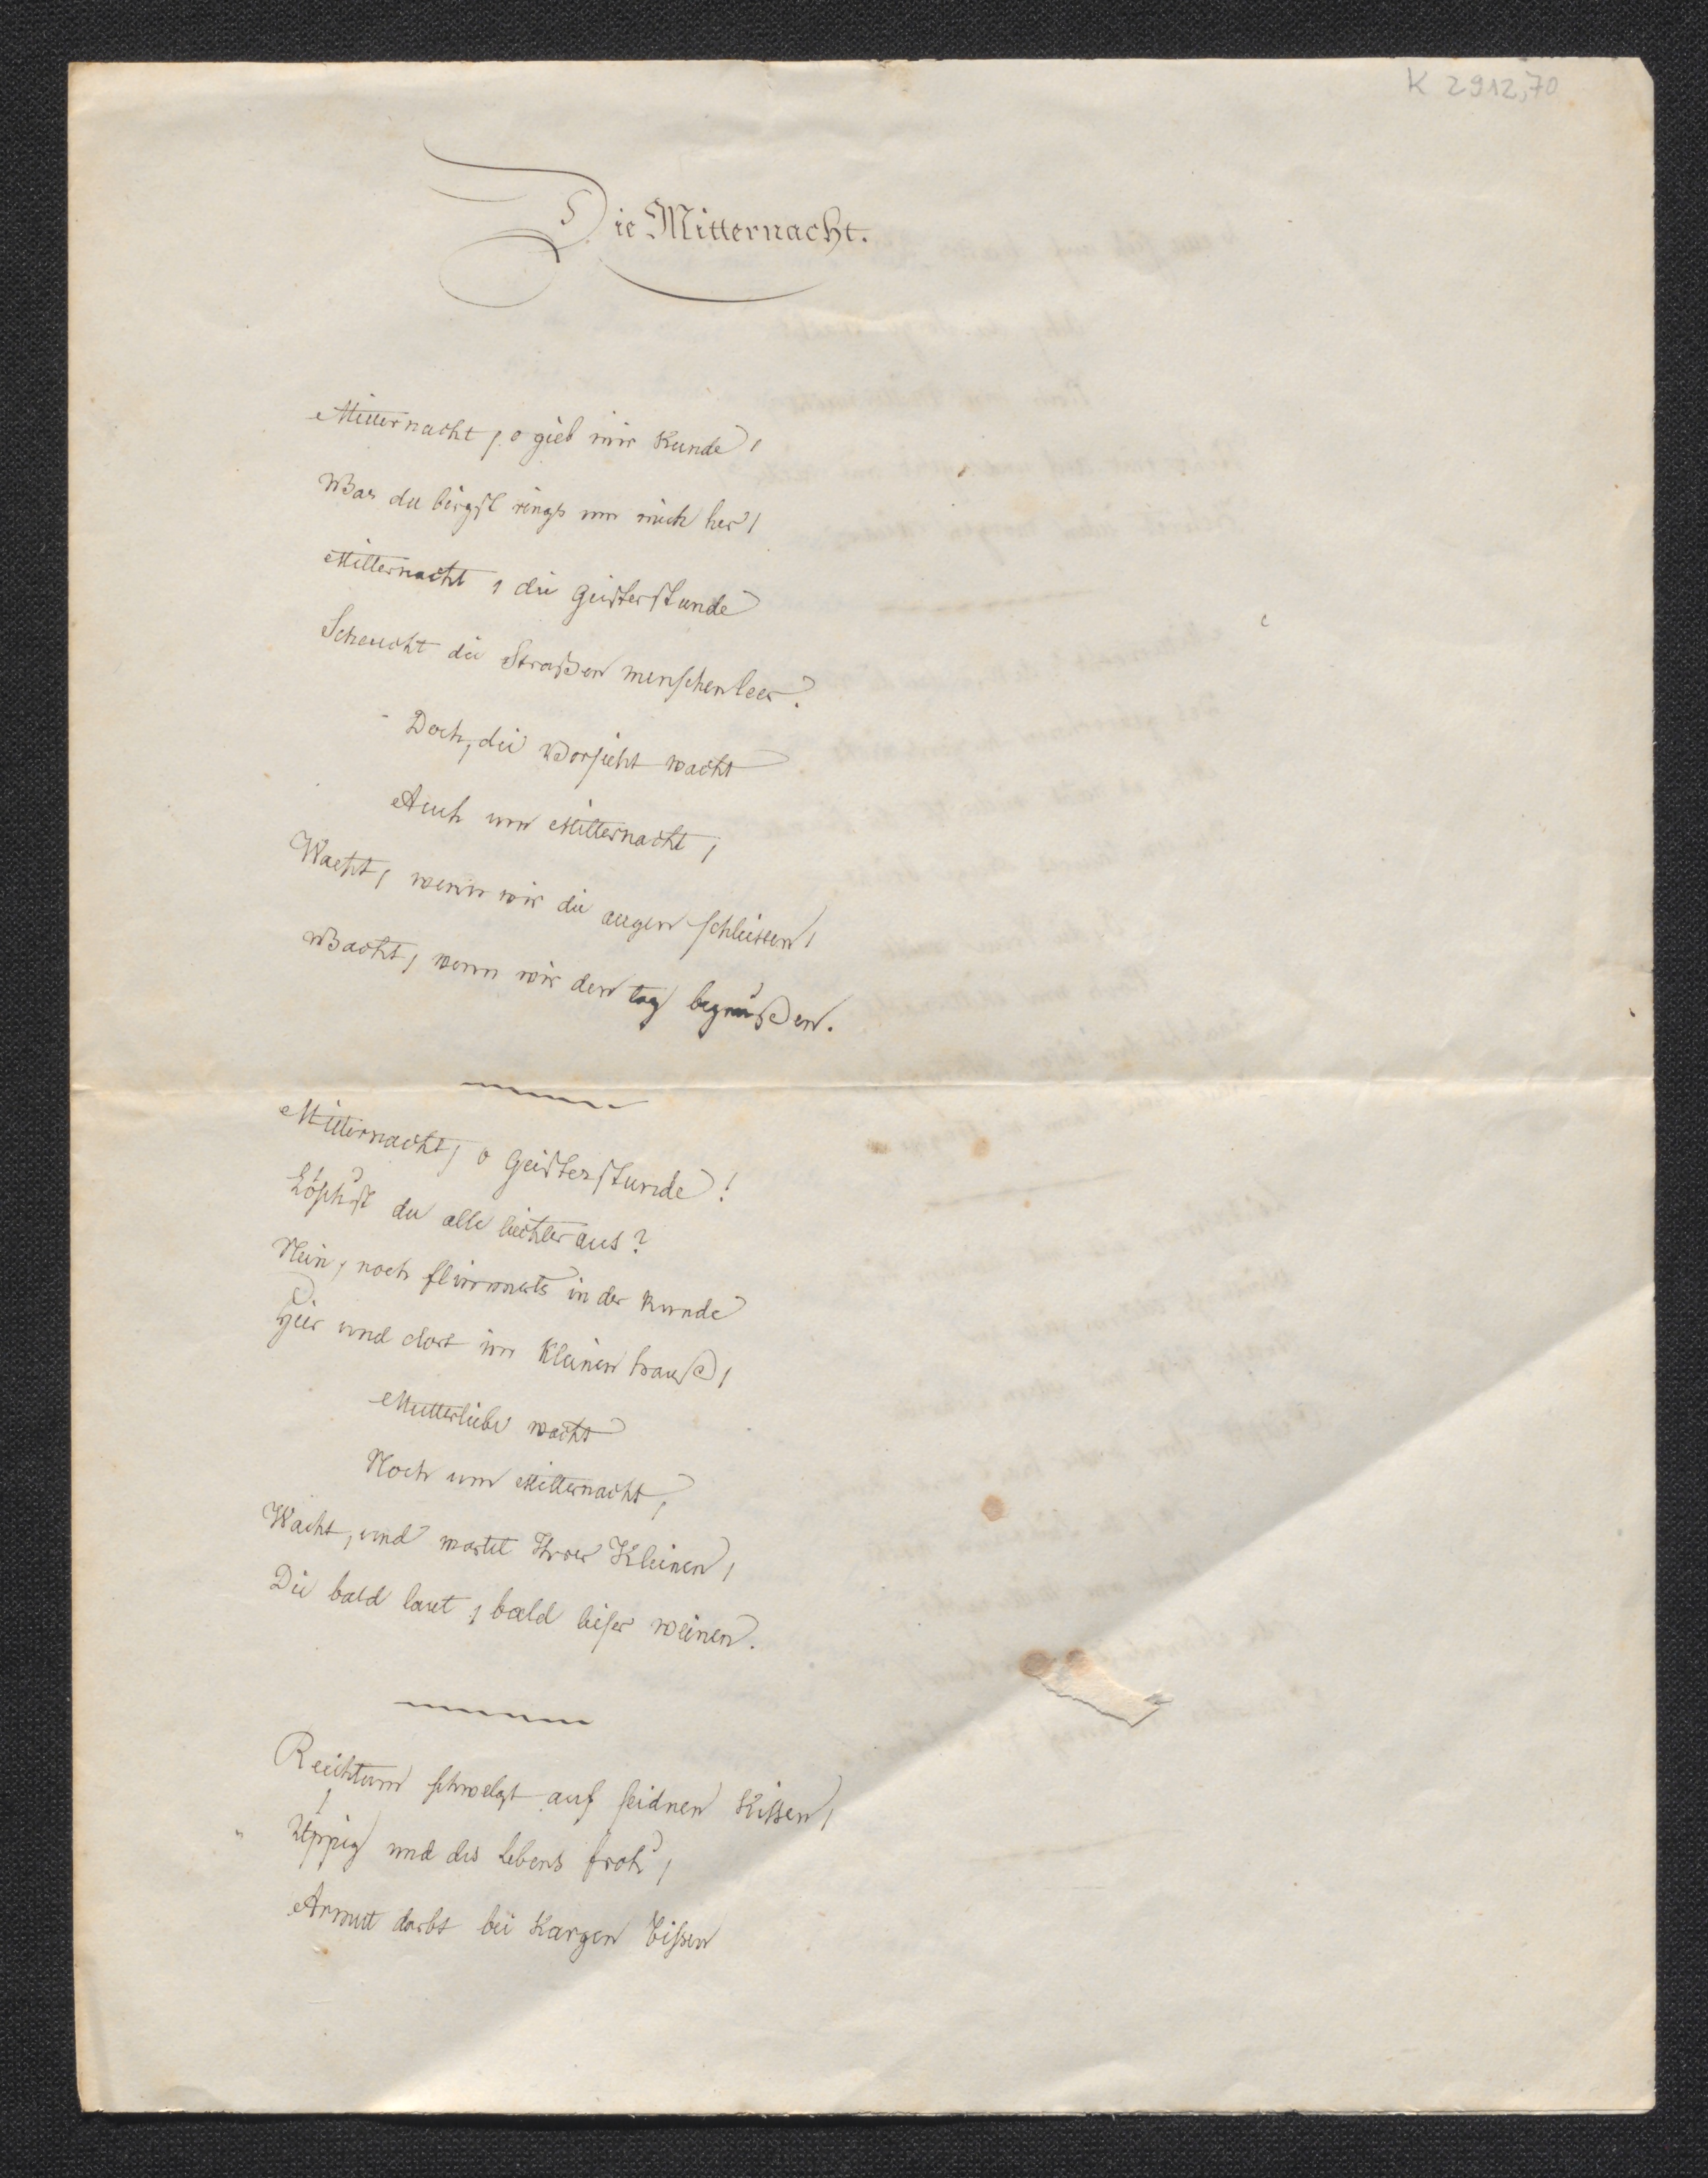 K 2912,70
Die Mitternacht.
Mitternacht, o gieb mir Kunde,
Was du birgst rings um mich her,
Mitternacht, die Geisterstunde
Scheucht die Straßen menschenleer?
Doch, die Vorsicht wacht
Auch um Mitternacht,
Wacht, wenn wir die augen schliessen,
Wacht, wenn wir den tag begrüßen.
Mitternacht, o Geisterstunde!
Löschst du alle lichter aus?
Nein, noch flimmerts in der Runde
Hier und dort im Kleinen hauße,
Mutterliebe wacht
Noch um Mitternacht,
Wacht, und wartet Ihrer Kleinen,
Die bald laut, bald leiser weinen.
Reichtum schwelgt auf seidnen Kissen,
Üppig und des Lebens froh,
Armutt darbt bei Kargen bissen